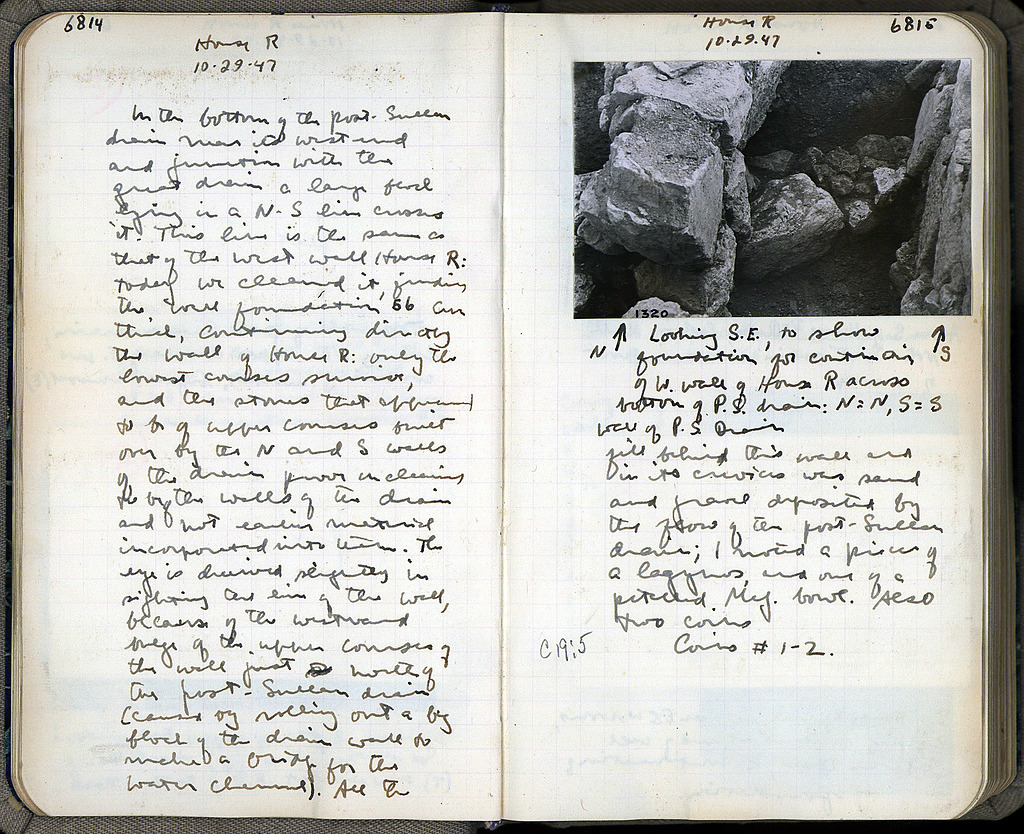 6814
House R
10-29-47
In the bottom of the post-Sullan
drain near its west end
and junction with the
great drain a large block
lying in a N-S line crosses
it. This line is the same as
that of the west wall House R:
today we cleaned it, finding
the wall foundation, 56 cm
thick, continuing directly
the wall of House R: only the
lowest courses survive,
and the stones that appeared
to be of upper courses built
over by the N and S walls
of the drain prove in cleaning
to be the walls of the drain
and not earlier material
incorporated into them. The
eye is deceived slightly in
sighting the line of the wall,
because of the westward
bulge of the upper courses of
the wall just north of
the post-Sullan drain
(caused by rolling out a big
block of the drain wall to
make a bridge for the
water channel). All the
6815
House R
10-29-47
1320
N ↑ Looking S.E., to show ↑ S
foundation for contin.
of W. wall of House R across
bottom of P.S. drain: N=N, S=S
wall of P.S. Drain
fill behind this wall and
in its crevices was sand
and gravel deposited by
the flow of the post-Sullan
drain; I noted a piece of
a lagynos, and one of a
Meg. bowl. Also
two coins
C 19;5 Coins # 1-2.